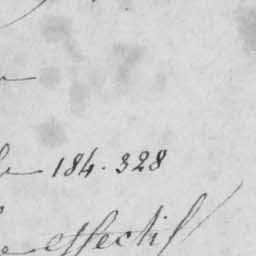 184.328
effectif